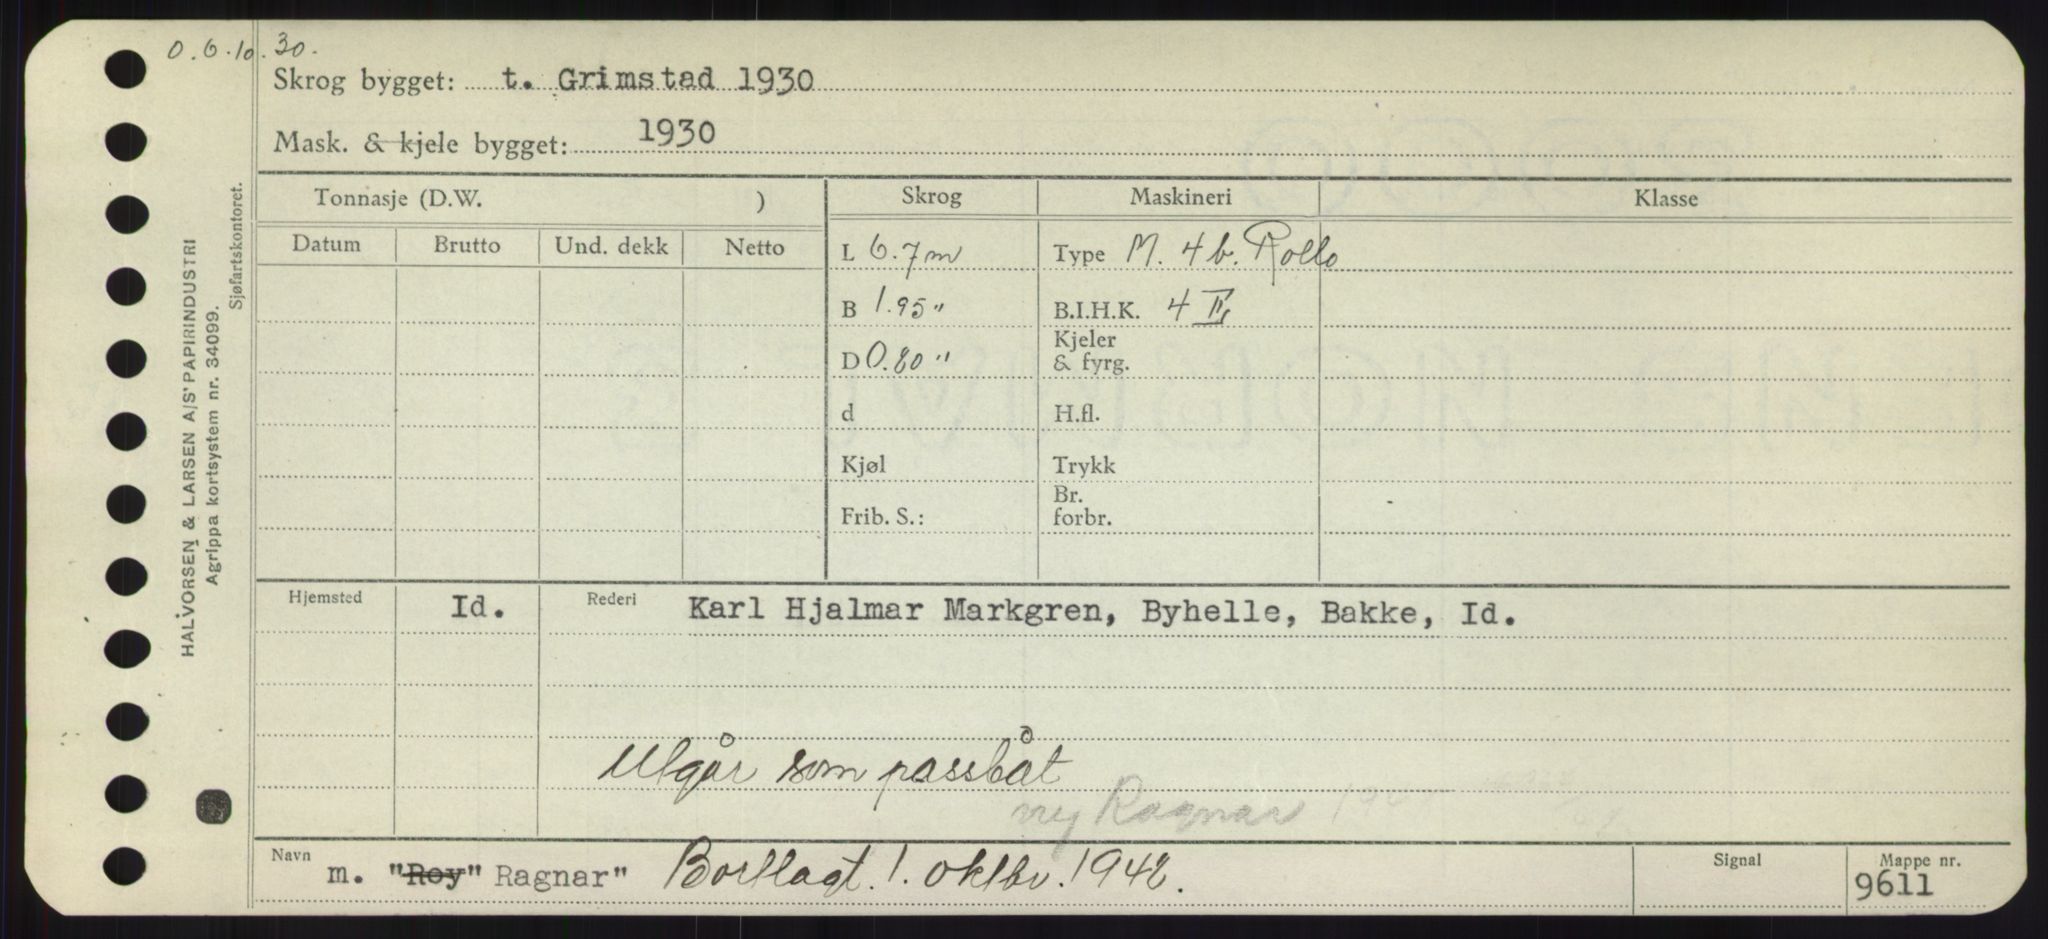 O. 6.10.30.
Skrog bygget: t. Grimstad 1930
Mask. & kjele bygget: 1930
HALVORSEN & LARSEN A/S' PAPIRINDUSTRI
Agrippa kortsystem nr. 34099.
Sjøfartskontoret.
Tonnasje (D.W. ) Skrog Maskineri Klasse
Datum Brutto Und. dekk Netto
L 6.7 m Type M. 4 b. Rollo
B 1.95 " B.I.H.K. 4
D 0.80 " Kjeler & fyrg.
d H.fl.
Kjøl Trykk
Frib. S.: Br. forbr.
Hjemsted Id. Rederi Karl Hjalmar Markgren, Byhelle, Bakke, Id.
Utgår som passbåt
ny Ragnar
Navn m. "Roy" Ragnar" Bortlagt. 1. oktbr. 1942. Signal Mappe nr. 9611